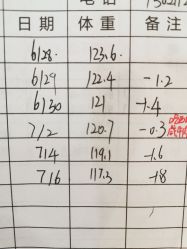 电话
日期 体重 备注
6/28. 123.6.
6/29 122.4 -1.2
6/30 121 -1.4
7/2 120.7 -0.3
7/4 119.1 -1.6
7/6 117.3 -1.8